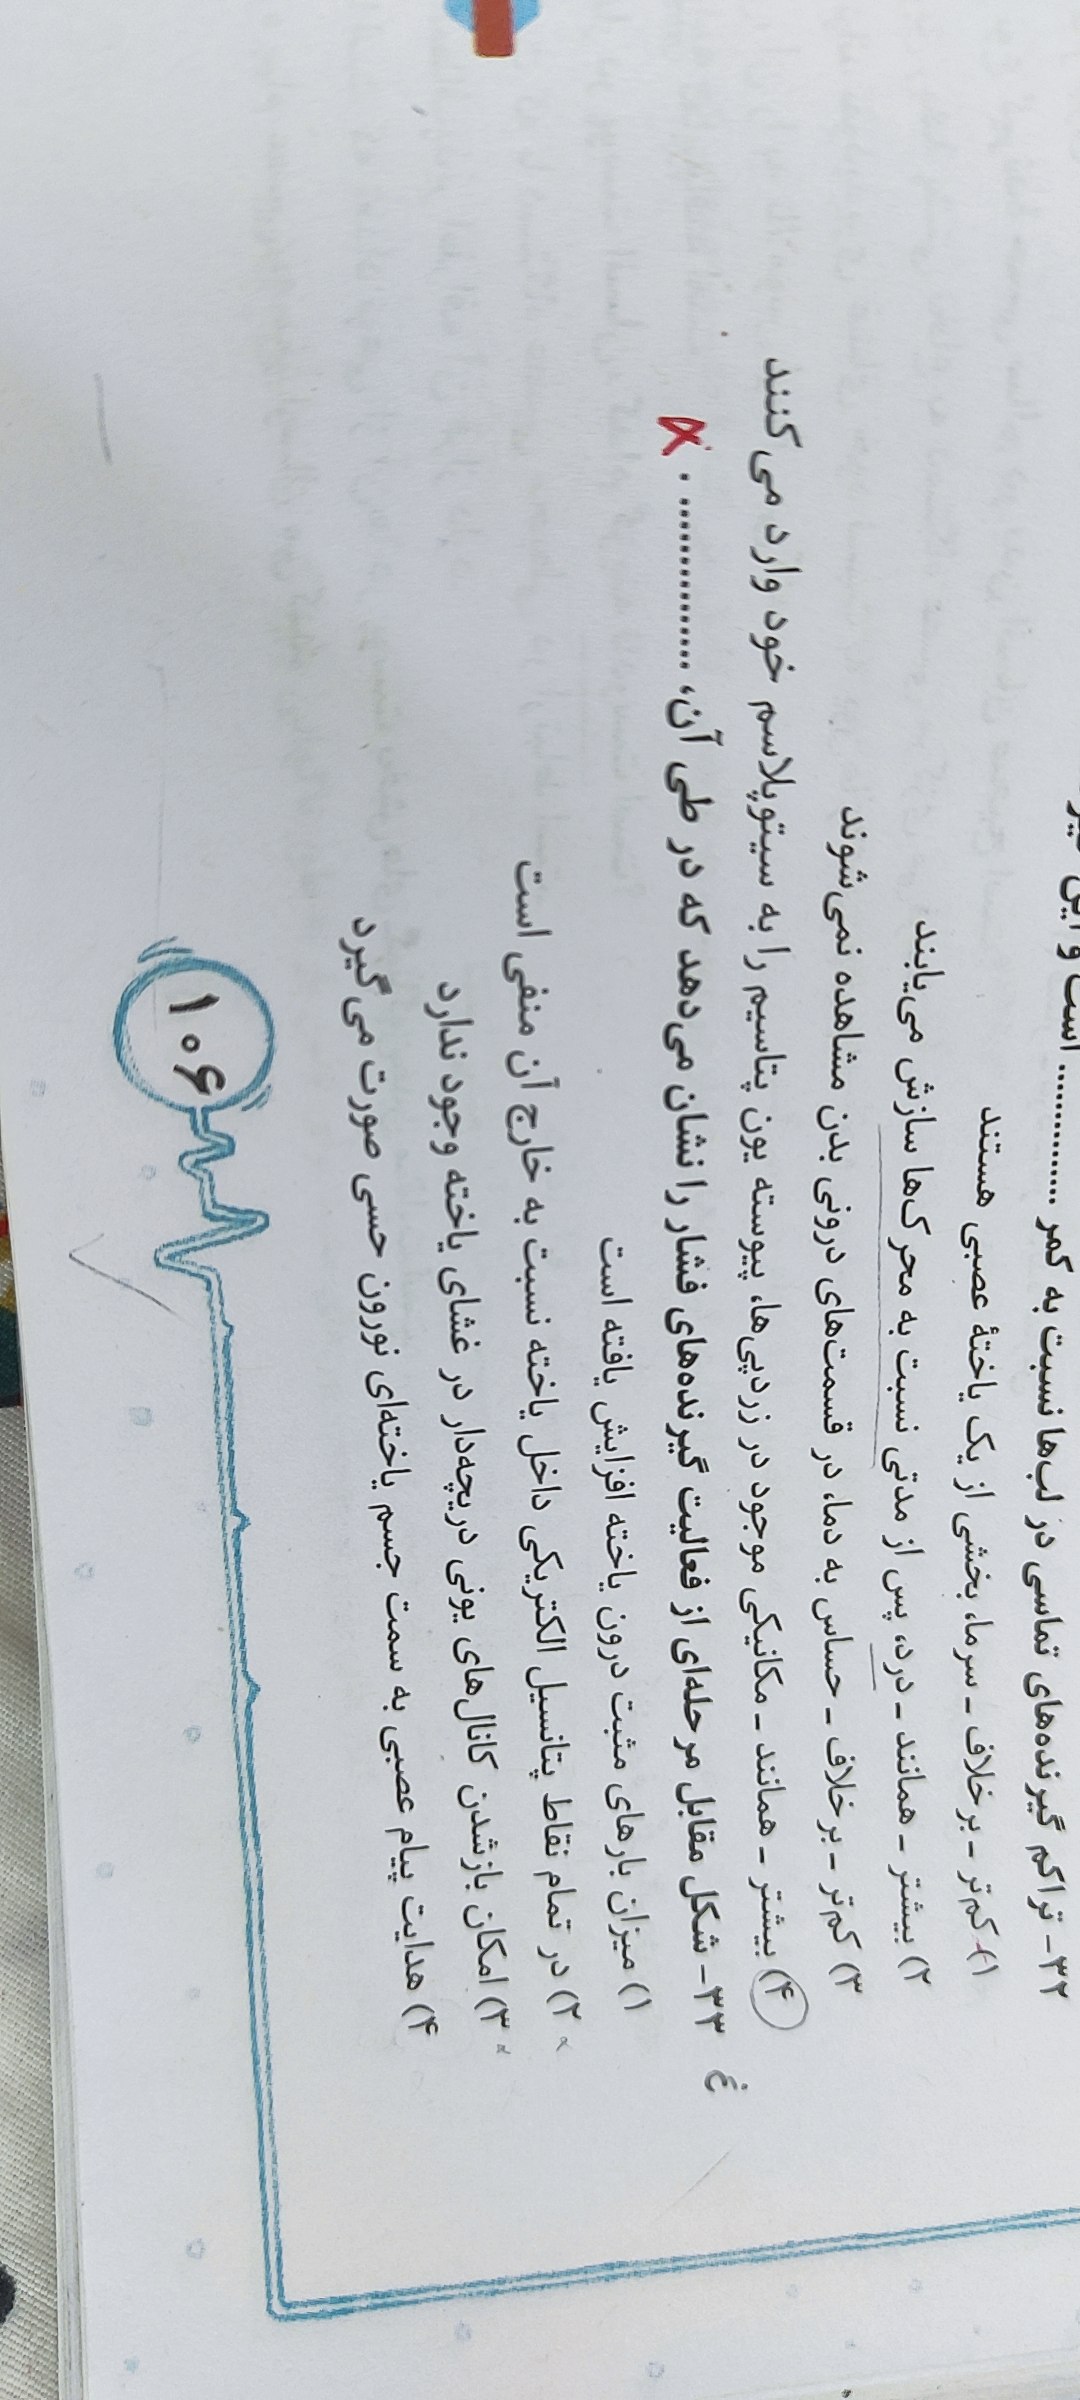 ۳۲- تراکم گیرنده‌های تماسی در لب‌ها نسبت به کمر .............. است و این
۱) کم‌تر - برخلاف - سرما، بخشی از یک یاختهٔ عصبی هستند
۲) بیشتر - همانند - درد، پس از مدتی نسبت به محرک‌ها سازش می‌یابند
۳) کم‌تر - برخلاف - حساس به دما، در قسمت‌های درونی بدن مشاهده نمی‌شوند
۴) بیشتر - همانند - مکانیکی موجود در زردپی‌ها، پیوسته یون پتاسیم را به سیتوپلاسم خود وارد می‌کنند
۳۳- شکل مقابل مرحله‌ای از فعالیت گیرنده‌های فشار را نشان می‌دهد که در طی آن، .............. .
۱) میزان بارهای مثبت درون یاخته افزایش یافته است
۲) در تمام نقاط پتانسیل الکتریکی داخل یاخته نسبت به خارج آن منفی است
۳) امکان بازشدن کانال‌های یونی دریچه‌دار در غشای یاخته وجود ندارد
۴) هدایت پیام عصبی به سمت جسم یاخته‌ای نورون حسی صورت می‌گیرد
۱۰۶